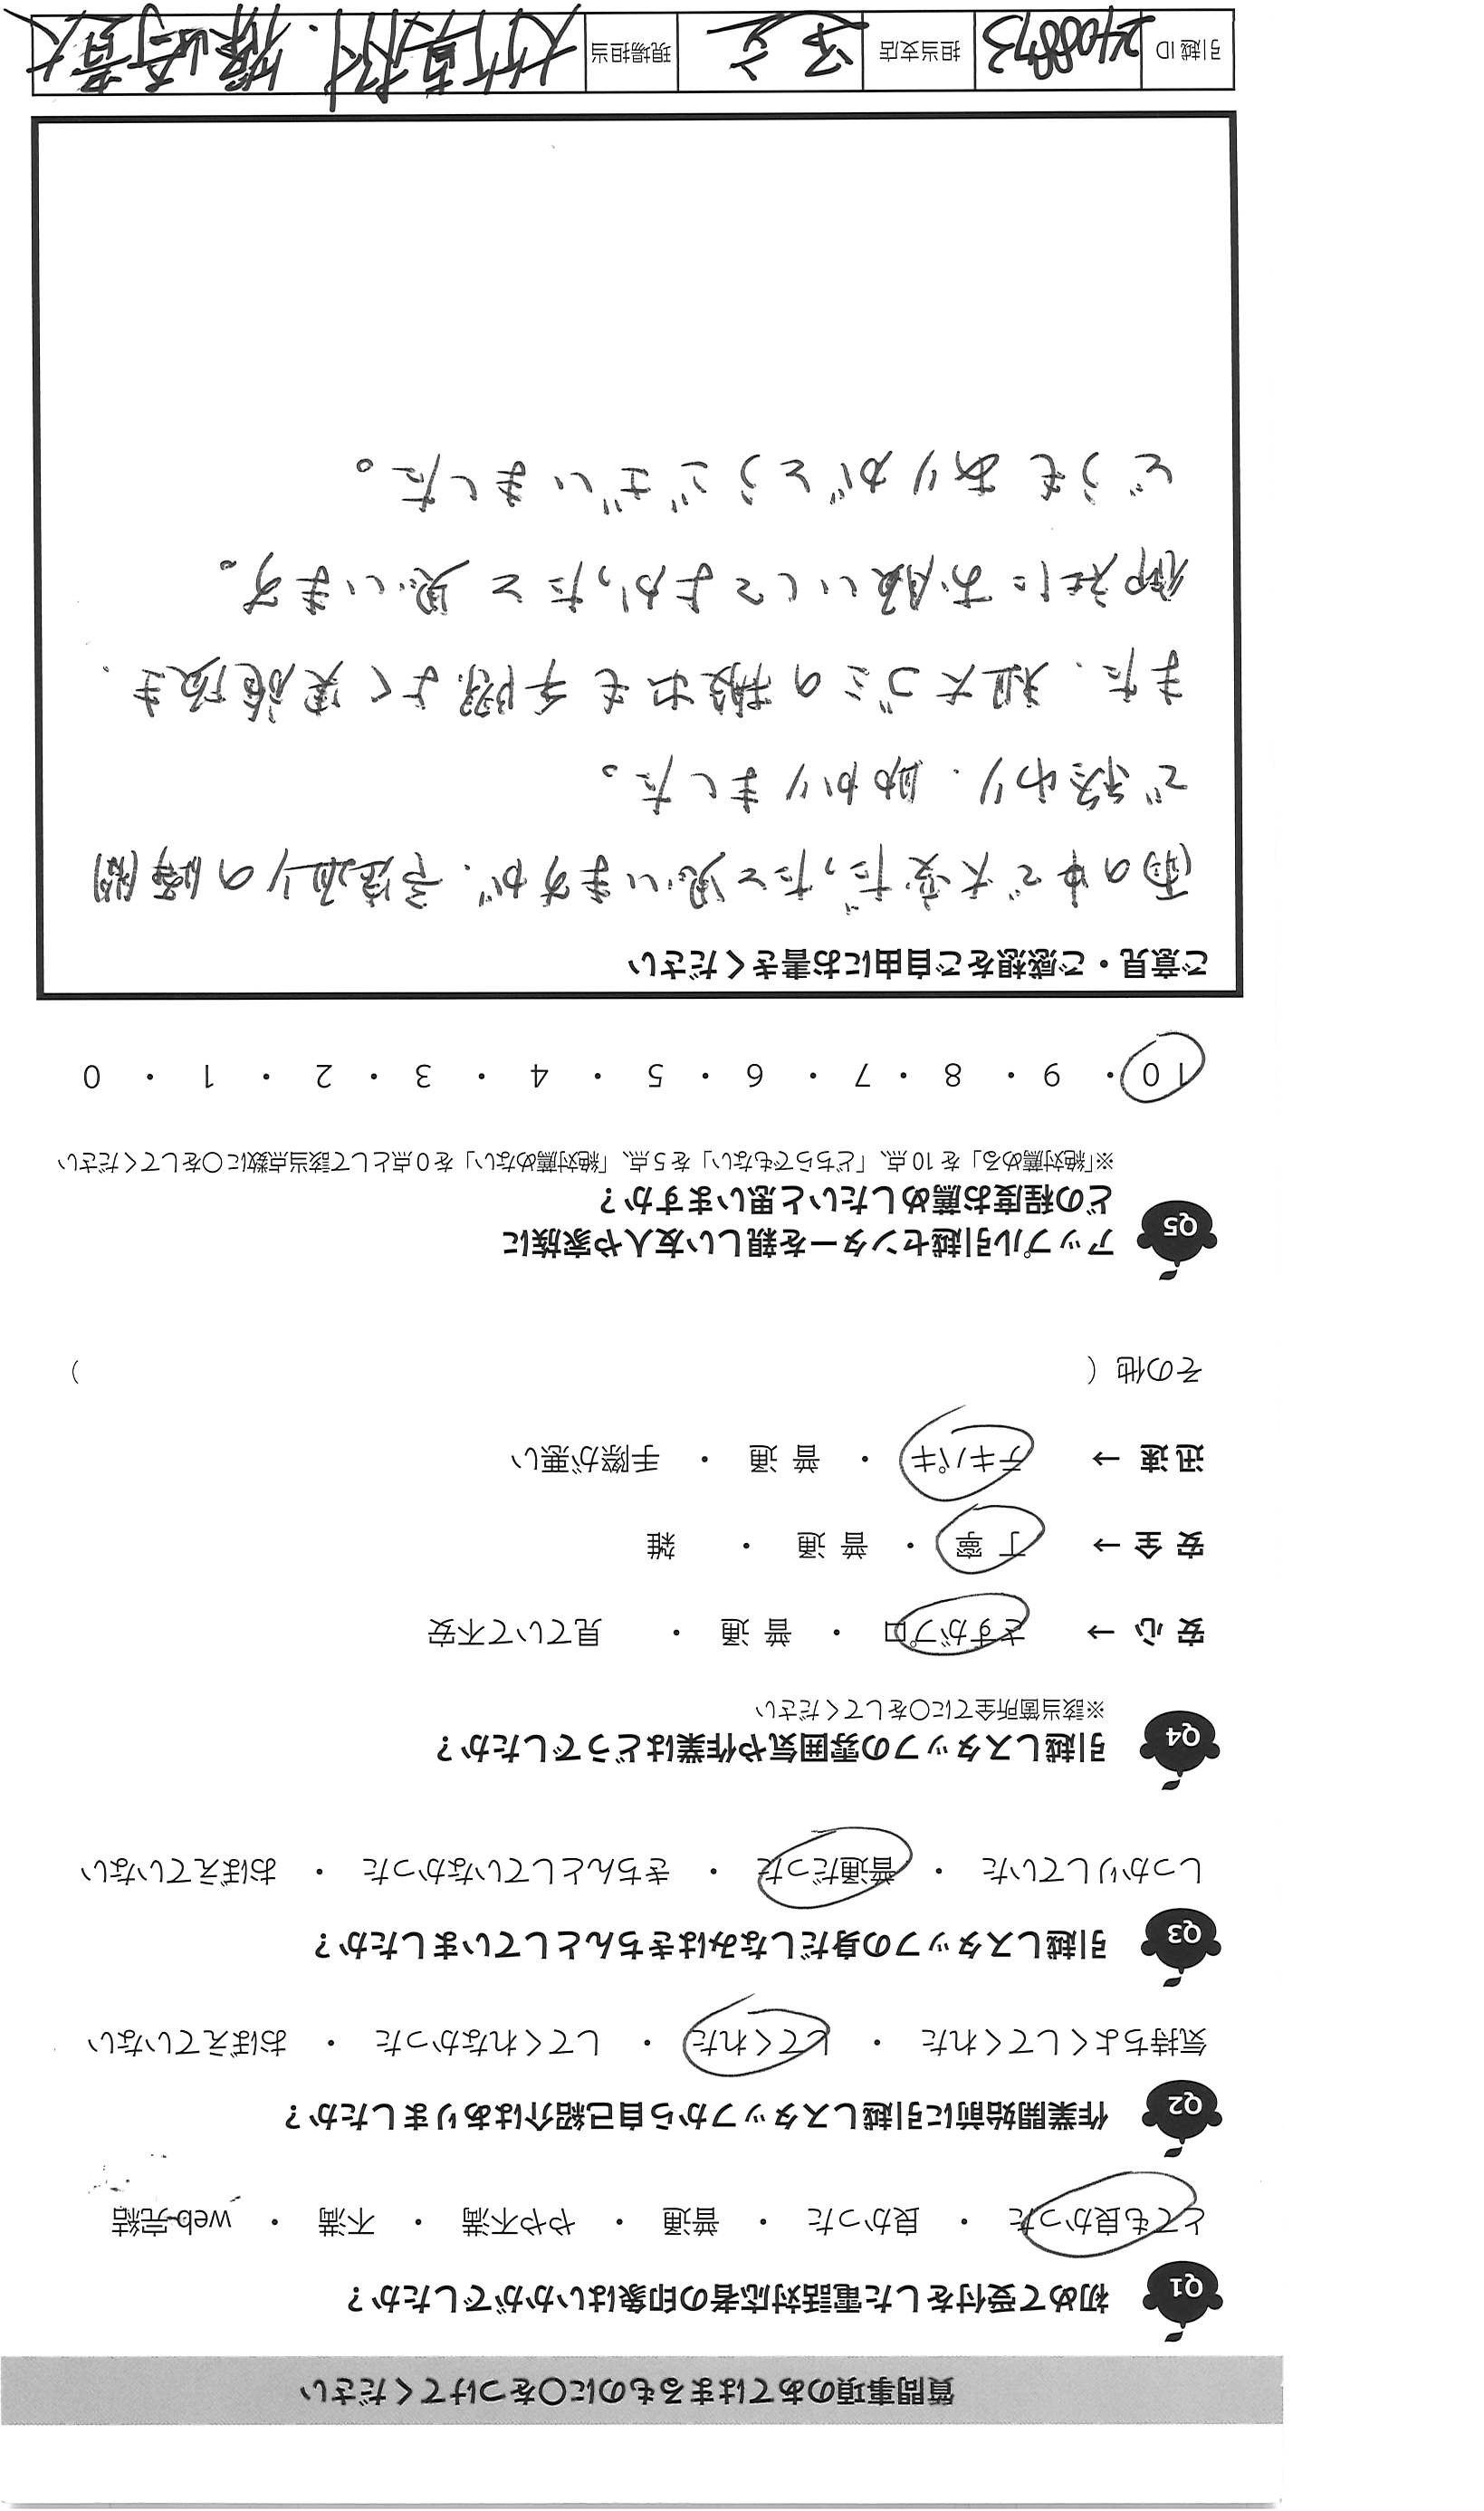 質問事項のあてはまるものに○をつけてください
Q1 初めて受付をした電話対応者の印象はいかがでしたか？
とても良かった ・ 良かった ・ 普通 ・ やや不満 ・ 不満 ・ web完結
Q2 作業開始前に引越しスタッフから自己紹介はありましたか？
気持ちよくしてくれた ・ してくれた ・ してくれなかった ・ おぼえていない
Q3 引越しスタッフの身だしなみはきちんとしていましたか？
しっかりしていた ・ 普通だった ・ きちんとしていなかった ・ おぼえていない
Q4 引越しスタッフの雰囲気や作業はどうでしたか？
※該当箇所全てに○をしてください
安心 → さすがプロ ・ 普通 ・ 見ていて不安
安全 → 丁寧 ・ 普通 ・ 雑
迅速 → テキパキ ・ 普通 ・ 手際が悪い
その他（ ）
Q5 アップル引越センターを親しい友人や家族に
どの程度お薦めしたいと思いますか？
※「絶対薦める」を10点、「どちらでもない」を5点、「絶対薦めない」を0点として該当点数に○をしてください
10 ・ 9 ・ 8 ・ 7 ・ 6 ・ 5 ・ 4 ・ 3 ・ 2 ・ 1 ・ 0
ご意見・ご感想をご自由にお書きください
雨の中で大変だったと思いますが、予定通りの時間
で終わり、助かりました。
また、粗大ゴミの搬出も手際よく実施頂き、
御社にお願いしてよかったと思います。
どうもありがとうございました。
引越ID 2408873 担当支店 足立 現場担当